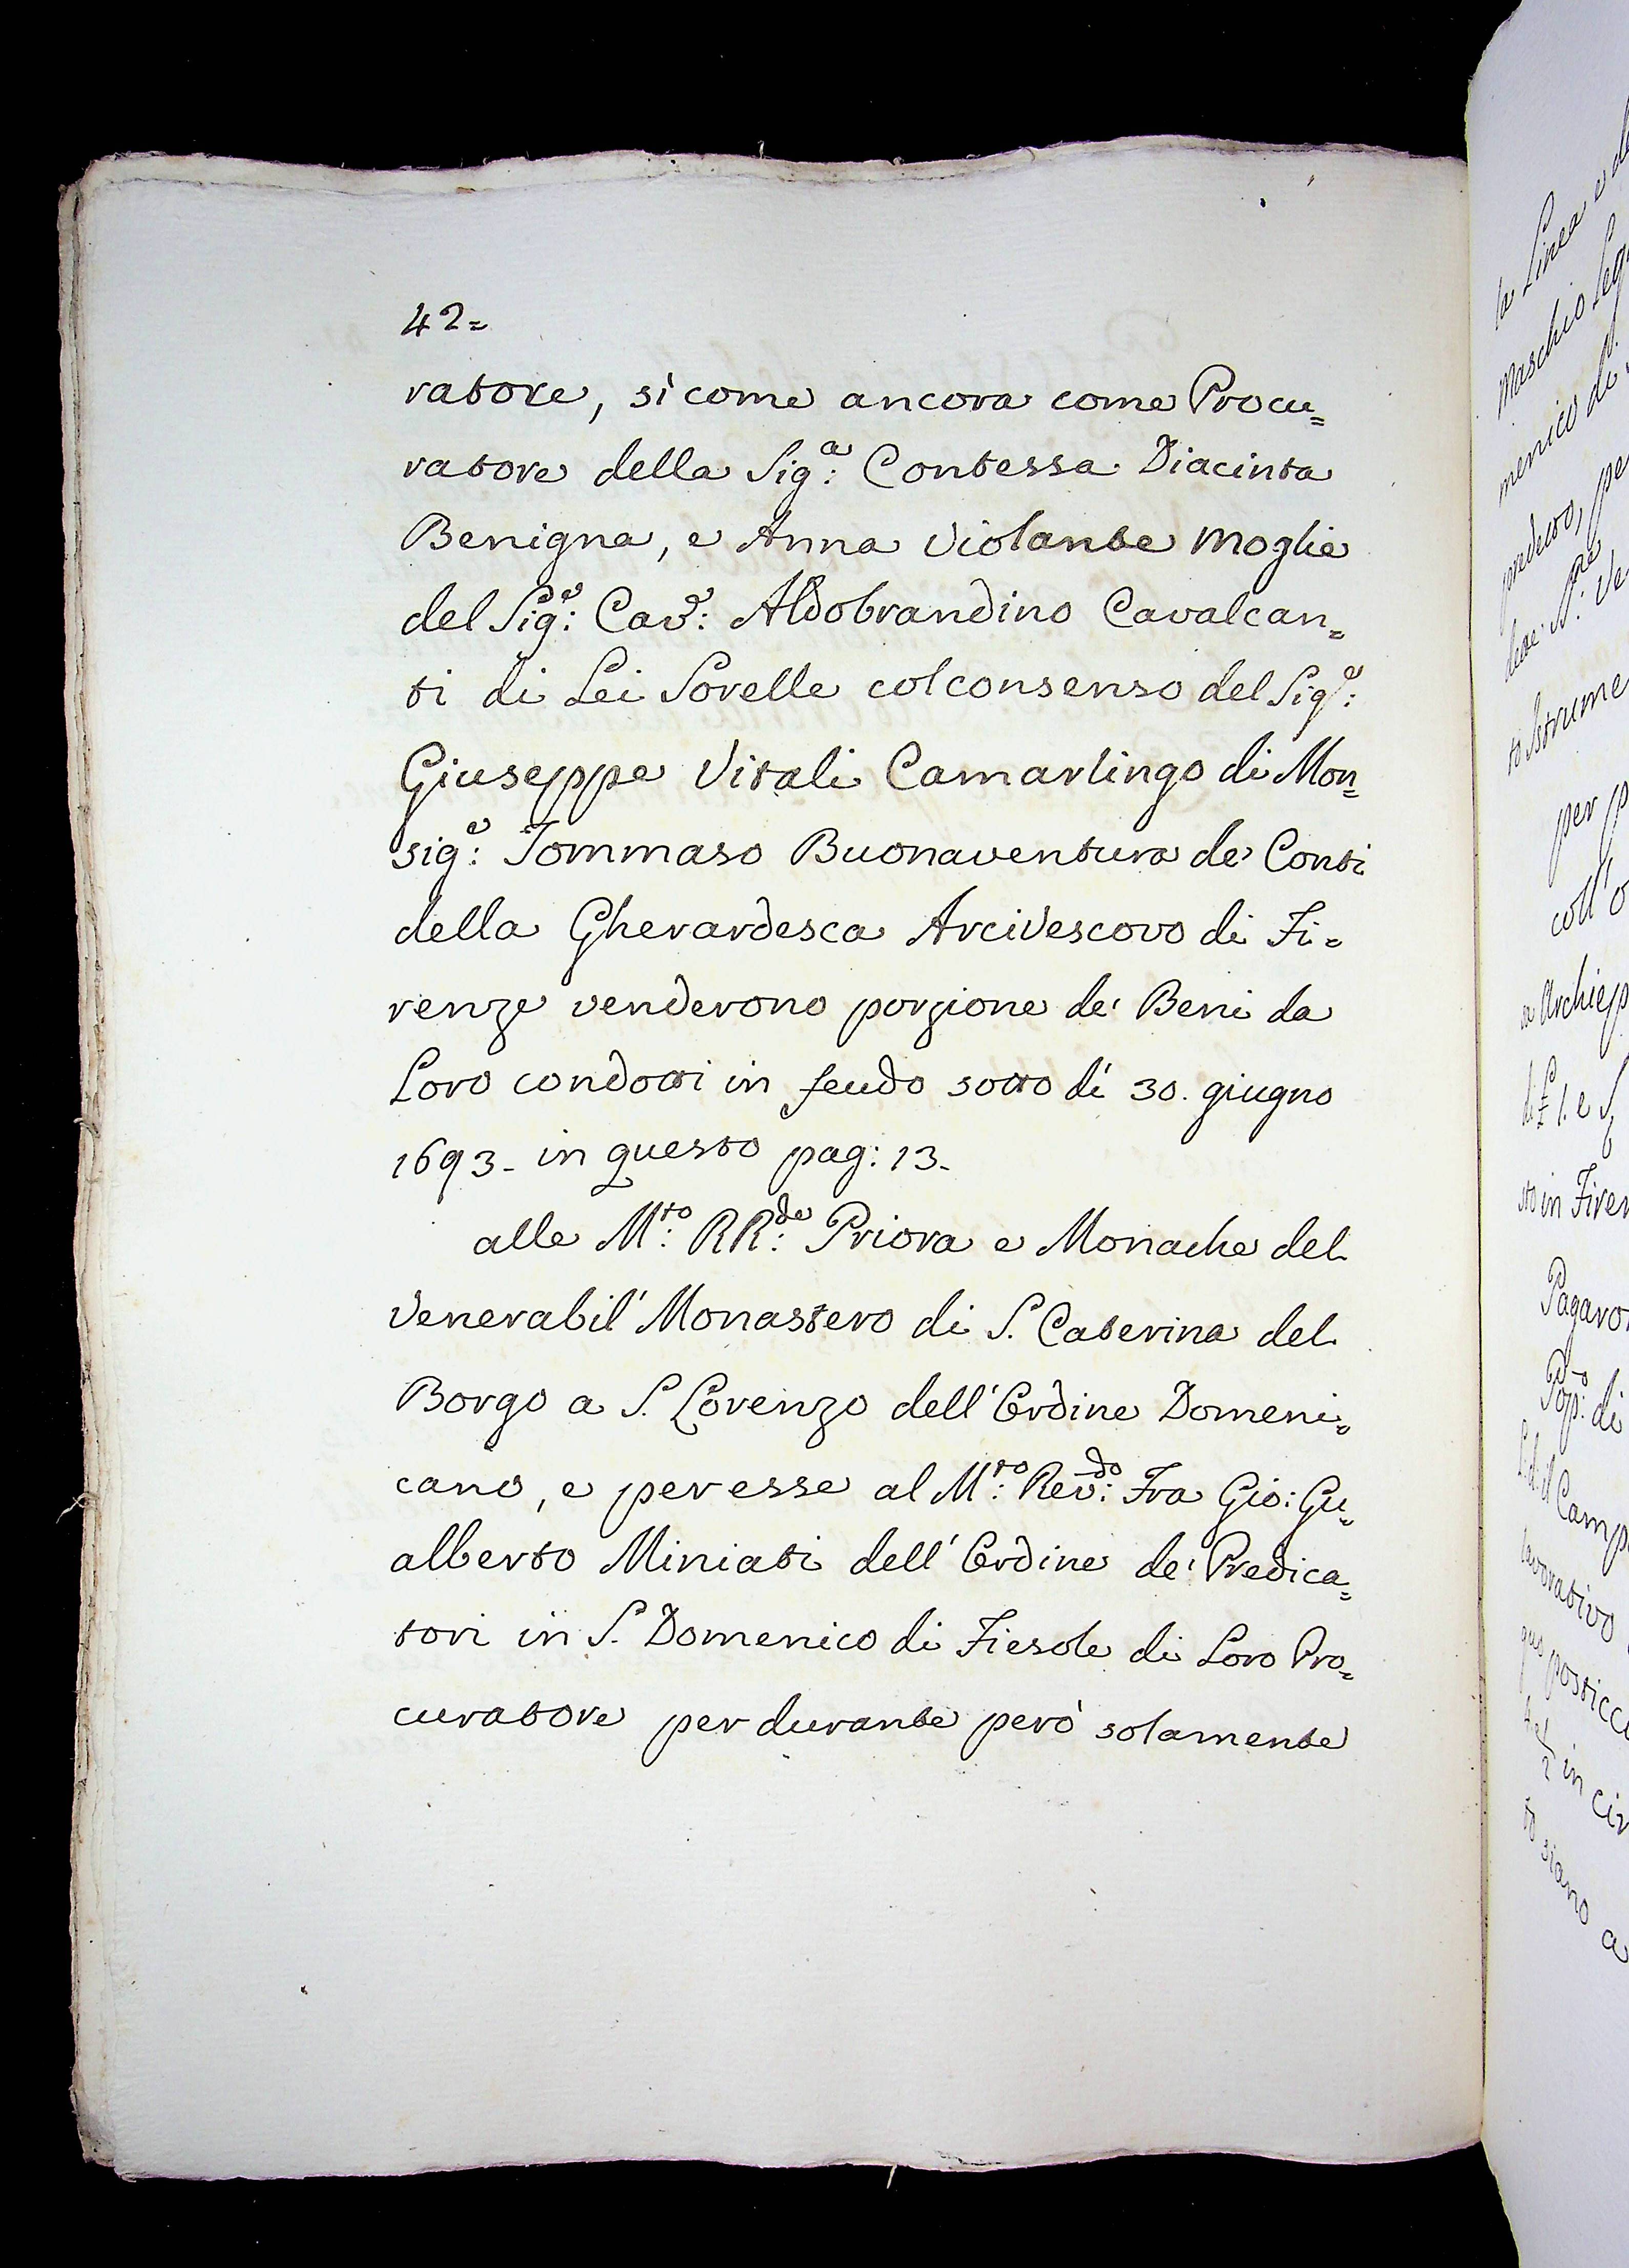 42=
ratore, sì come ancora come Procu=
ratore della Sig.ª: Contessa Diacinta
Benigna, e Anna Violante Moglie
del Sig.e: Cav.e: Aldobrandino Cavalcan=
ti di Lei Sorelle col consenso del Sig.e:
Giuseppe Vitali Camarlingo di Mon=
sig.e: Tommaso Buonaventura de' Conti
della Gherardesca Arcivescovo di Fi=
renze venderono porzione de' Beni da
Loro condotti in feudo sotto dì 30. giugno
1693- in questo pag: 13-
alle M.to: RR.de: Priora e Monache del
Venerabil' Monastero di S. Caterina del
Borgo a S. Lorenzo dell' Ordine Domeni=
cano, e per esse al M.to: Rev.do: Fra Gio: Gu=
alberto Miniati dell' Ordine de' Predica=
tori in S. Domenico di Fiesole di Loro Pro=
curatore per durante però solamente
la Linea e
Maschio
menico di
per
coll'
Archiep
sto in Firen
Pagaro
Pop: di
Camp
lavorativo
posticc
in cir
siano a